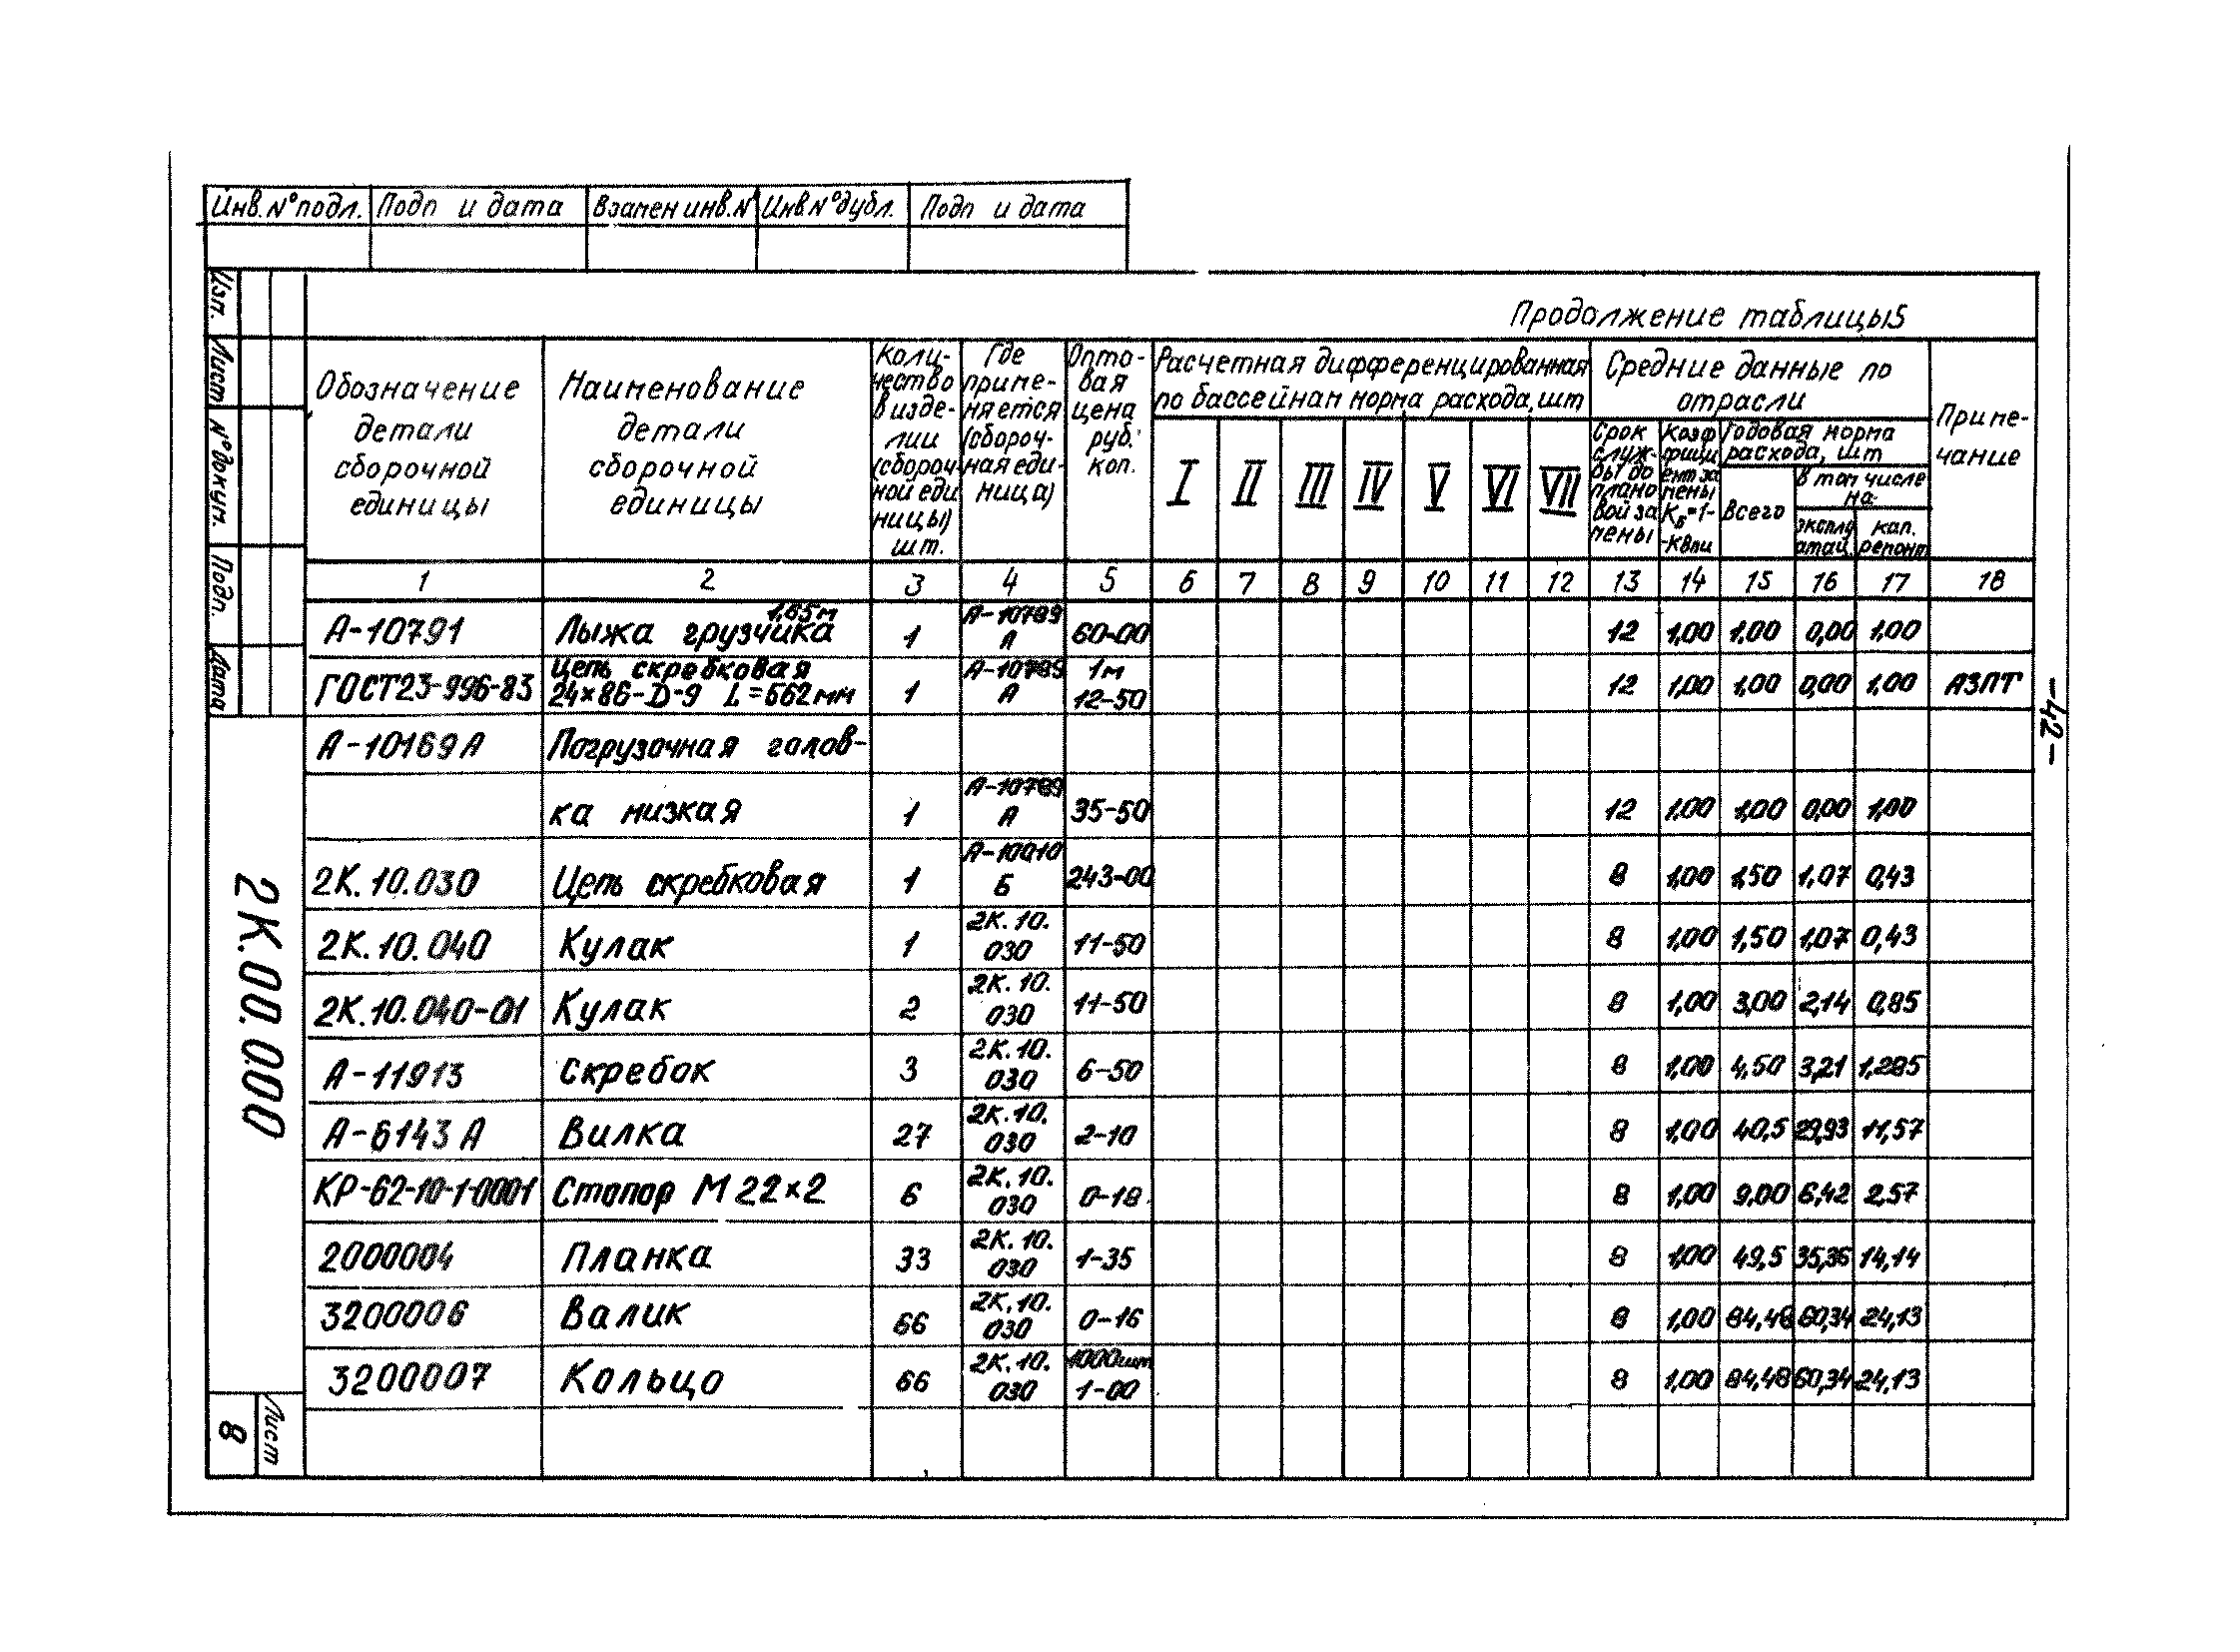 Инв.N°подл. Подп и дата Взамен инв.N Инв N°дубл. Подп и дата
Изп.
Лист
N°докум.
Подп.
Дата
2К.00.0.000
Лист
8
-42-
Продолжение таблицы 5
Обозначение детали сборочной единицы
Наименование детали сборочной единицы
Колич-
чество
в изде-
лии
(сбороч
ной еди
ницы)
шт.
Где
приме-
няется
(сбороч-
ная еди-
ница)
Опто-
вая
цена
руб.
коп.
Расчетная дифференцированная
по бассейнам норма расхода, шт
I II III IV V VI VII
Средние данные по
отрасли
Срок
служ-
бы до
плано
вой за
мены
Коэф
фици
ент за
мены
Кб=1-
-Квпи
Годовая норма
расхода, шт
Всего
в том числе
на:
эксплу
атац.
кап.
ремонт
Приме-
чание
1 2 3 4 5 6 7 8 9 10 11 12 13 14 15 16 17 18
А-10791 Лыжа грузчика 1,65м 1 А-10789 А 60-00 12 1,00 1,00 0,00 1,00
ГОСТ23-996-83 Цепь скребковая 24×86-D-9 L=662мм 1 А-10789 А 1м 12-50 12 1,00 1,00 0,00 1,00 АЗПТ
А-10169А Погрузочная голов-
ка низкая 1 А-10789 А 35-50 12 1,00 1,00 0,00 1,00
2К.10.030 Цепь скребковая 1 А-10010 Б 243-00 8 1,00 1,50 1,07 0,43
2К.10.040 Кулак 1 2К.10.030 11-50 8 1,00 1,50 1,07 0,43
2К.10.040-01 Кулак 2 2К.10.030 11-50 8 1,00 3,00 2,14 0,85
А-11913 Скребок 3 2К.10.030 6-50 8 1,00 4,50 3,21 1,285
А-6143А Вилка 27 2К.10.030 2-10 8 1,00 40,5 29,93 11,57
КР-62-10-1-0001 Стопор М22×2 6 2К.10.030 0-18 8 1,00 9,00 6,42 2,57
2000004 Планка 33 2К.10.030 1-35 8 1,00 49,5 35,36 14,14
3200006 Валик 66 2К.10.030 0-16 8 1,00 84,48 60,34 24,13
3200007 Кольцо 66 2К.10.030 1000шт 1-00 8 1,00 84,48 60,34 24,13